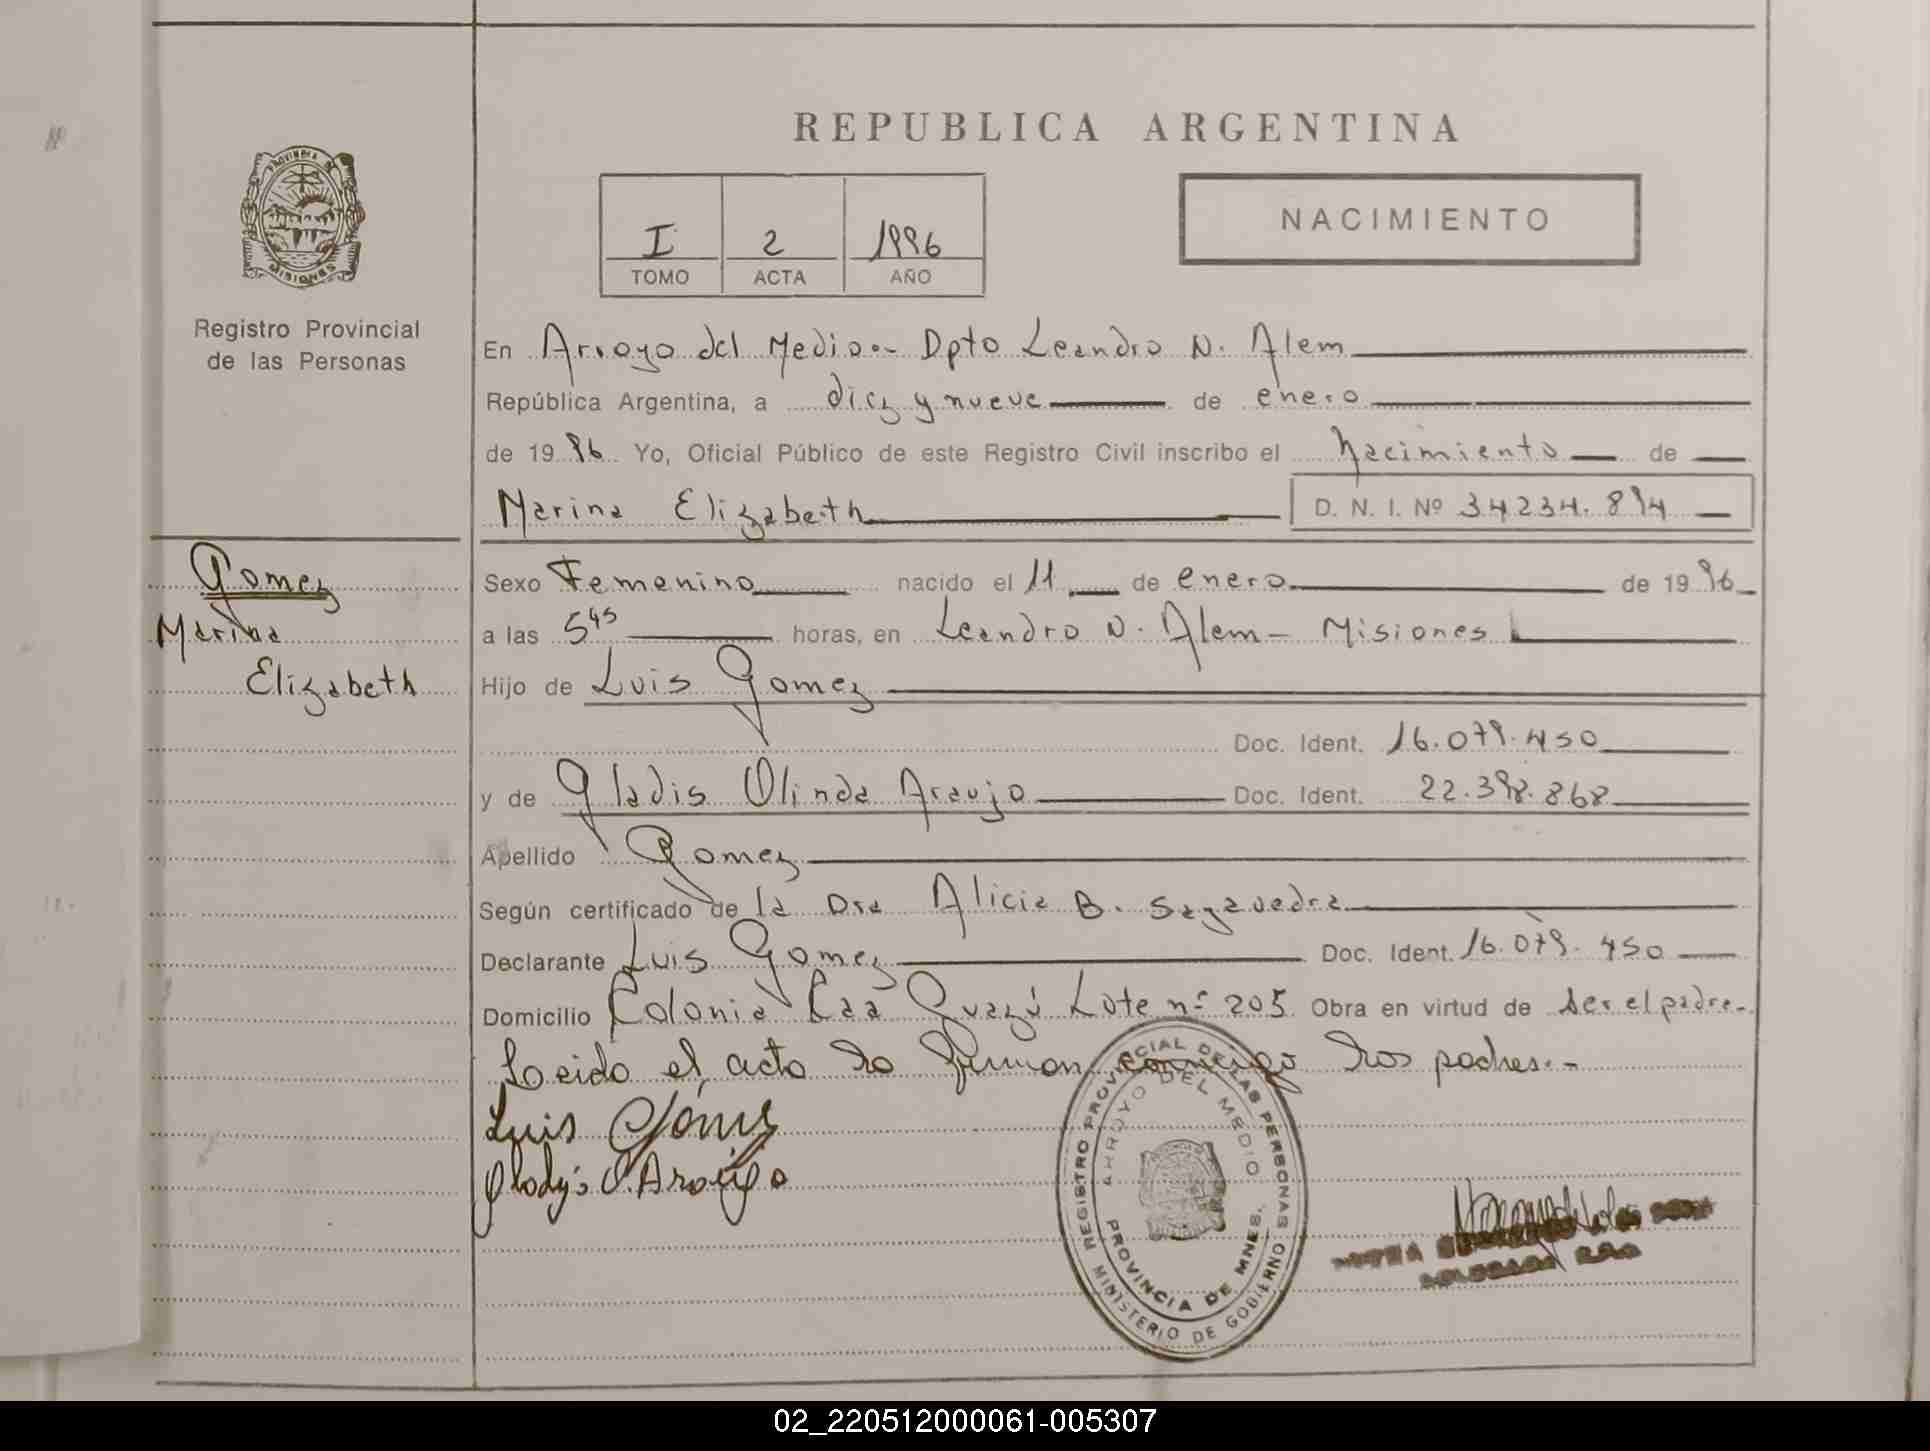 REPUBLICA ARGENTINA
PROVINCIA DE
MISIONES
Registro Provincial
de las Personas
NACIMIENTO
I 2 1996
TOMO ACTA AÑO
En Arroyo del Medio.- Dpto Leandro N. Alem
República Argentina, a diez y nueve de enero
de 1996 Yo, Oficial Público de este Registro Civil inscribo el Nacimiento de
Marina Elizabeth D. N. I. Nº 34234.894
Gomez
Marina
Elizabeth
Sexo Femenino nacido el 11 de enero de 1996
a las 5 45 horas, en Leandro N. Alem - Misiones
Hijo de Luis Gomez
Doc. Ident. 16.079.450
y de Gladis Olinda Araujo Doc. Ident. 22.398.868
Apellido Gomez
Según certificado de la Dra Alicia B. Sagavedra
Declarante Luis Gomez Doc. Ident. 16.079.450
Domicilio Colonia Caa Guazú Lote nº 205 Obra en virtud de ser el padre.-
Leido el acta lo firman conmigo los padres.-
Luis Gómez
Gladys O. Araujo
REGISTRO PROVINCIAL DE LAS PERSONAS
ARROYO DEL MEDIO
PROVINCIA DE MNES.
MINISTERIO DE GOBIERNO
02_220512000061-005307